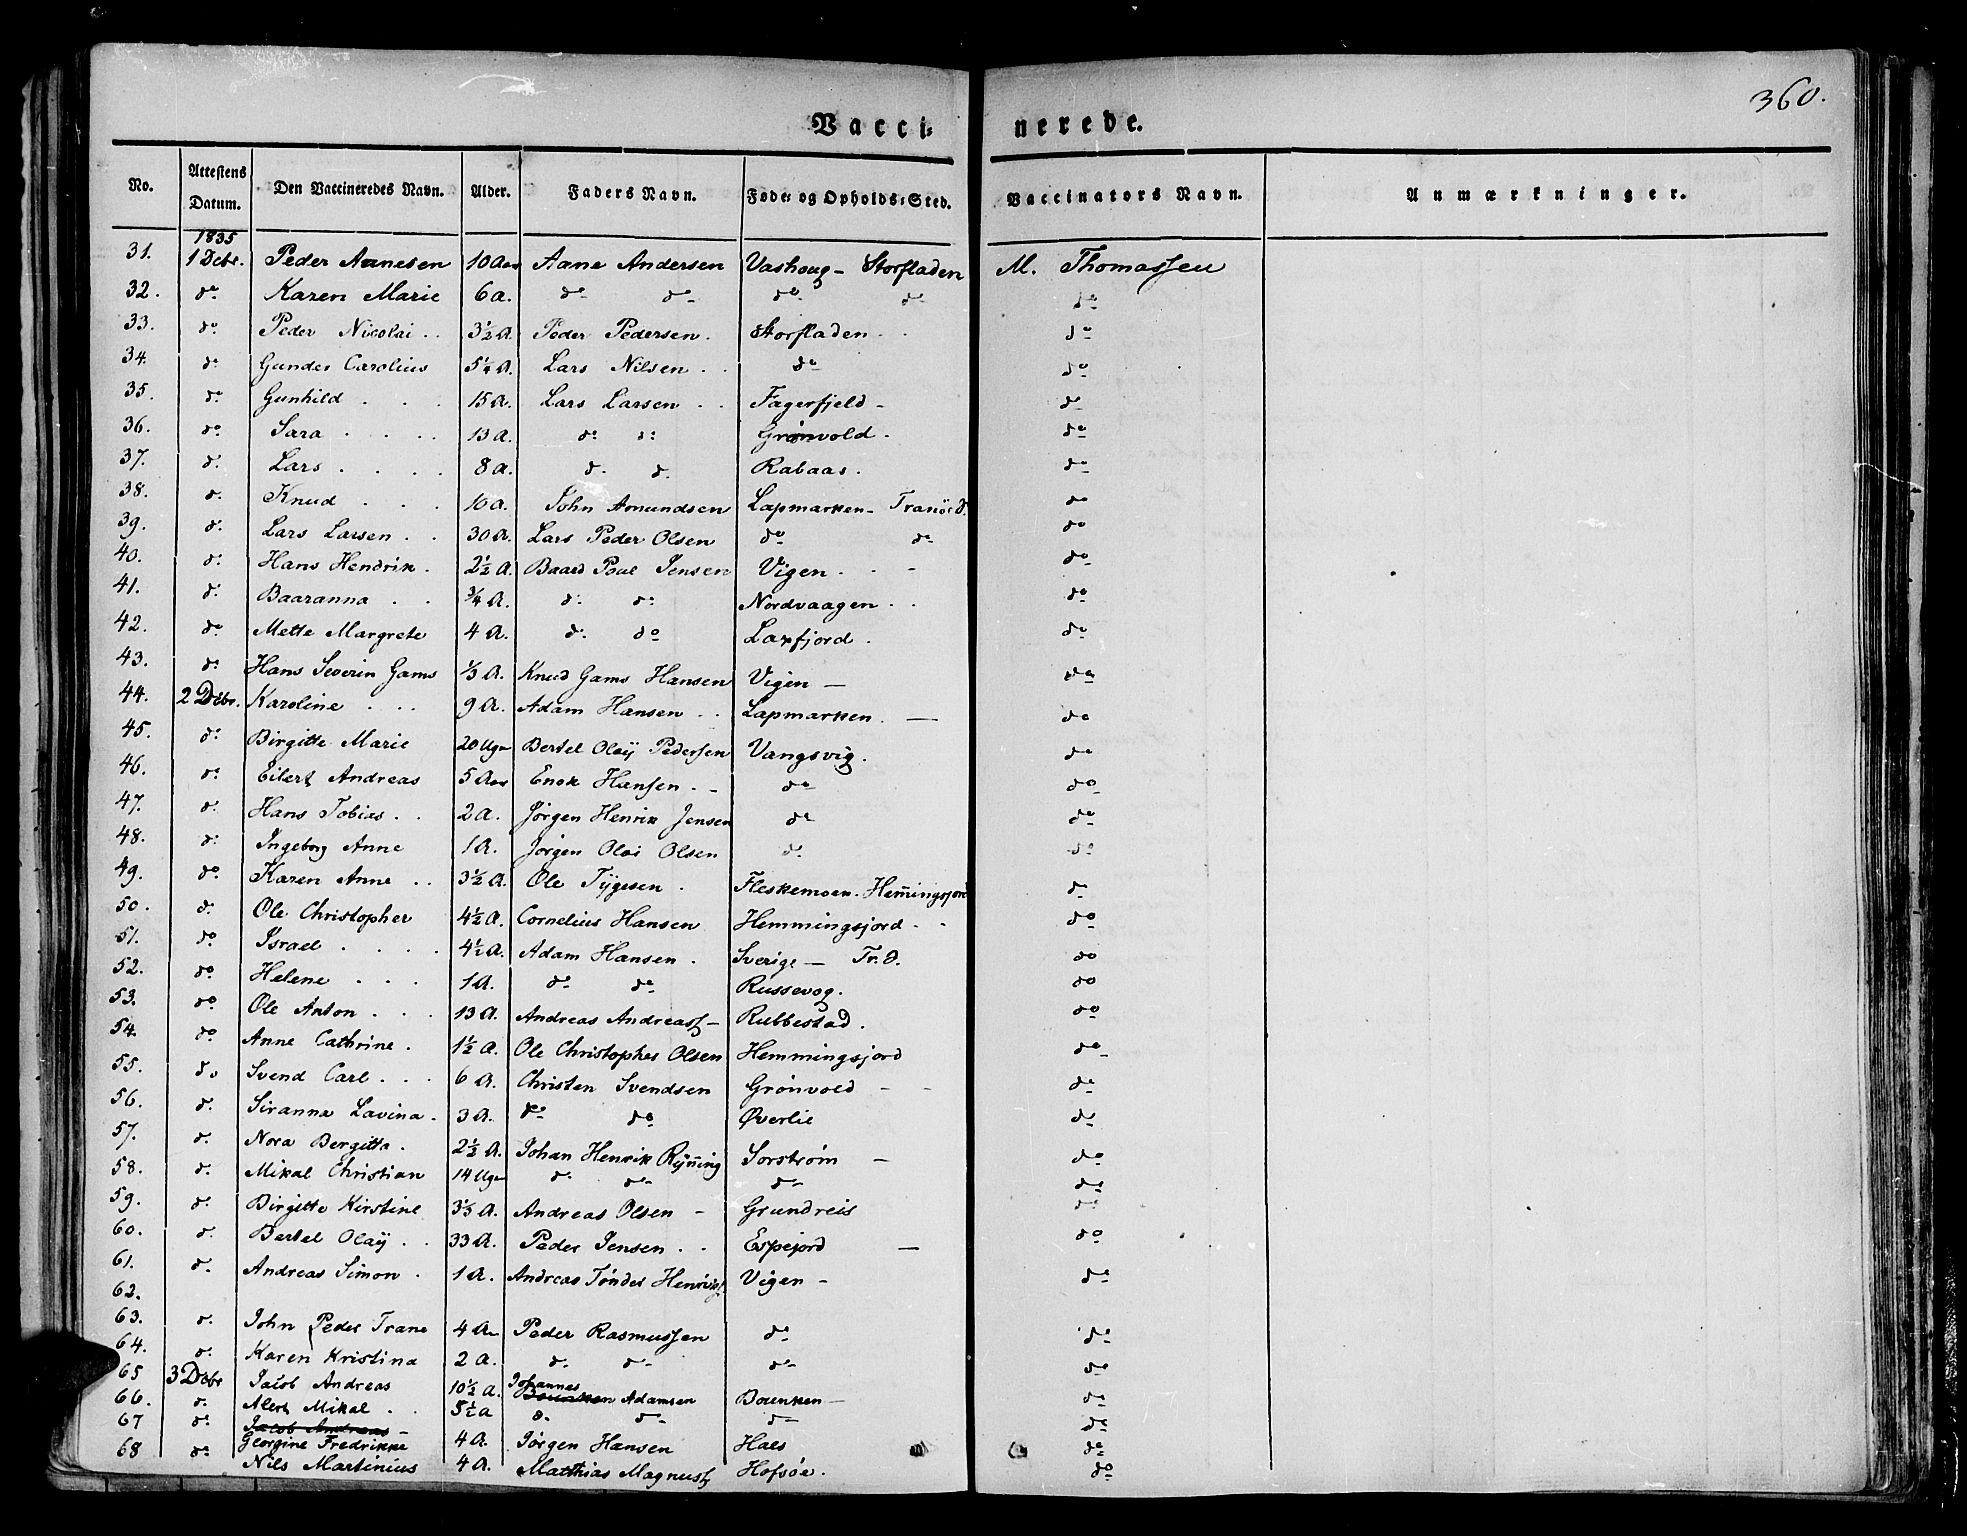 360.
Vacci- nerede.
No. Attestens Datum. Den Vaccineredes Navn. Alder. Faders Navn. Føde- og Opholds-Sted. Vaccinators Navn. Anmærkninger.
1835
31. 1 Decbr. Peder Aanesen 10 Aar Aane Andersen Vashoug - Storfladen M. Thomassen
32. do Karen Marie 6 A. do do do do do
33. do Peder Nicolai 3½ A. Peder Pedersen. Storfladen do
34. do Gunder Carolius 5¼ A. Lars Nilsen do do
35. do Gunhild 15 A. Lars Larsen Fagerfjeld - do
36. do Sara 13 A. do do Grønvold. do
37. do Lars 8 A. do do Rabaas. do
38. do Knud 10 A. John Amundsen Lapmarken - Tranöe d. do
39. do Lars Larsen 30 A. Lars Peder Olsen do do do
40. do Hans Hendrik 2½ A. Baard Poul Jensen Vigen do
41. do Baaranna ¾ A. do do Nordvaagen do
42. do Mette Margrete 4 A. do do Laxfjord. do
43. do Hans Severin Gams ⅓ A. Knud Gams Hansen Vigen — do
44. 2 Decbr. Karoline 9 A. Adam Hansen Lapmarken. — do
45. do Birgitte Marie 20 Uger Bertel Olaÿ Pedersen Vangsvig. do
46. do Eilert Andreas 5 Aar Enok Hansen do do
47. do Hans Tobias 2 A. Jørgen Henrik Jensen do do
48. do Ingeborg Anne 1 A. Jørgen Olai Olsen do do
49. do Karen Anne 3½ A. Ole Tÿgesen. Fleskemoen. Hem̄ingsjord do
50. do Ole Christopher 4½ A. Cornelius Hansen Hemmingsjord do
51. do Israel 4½ A. Adam Hansen. Sverige — Tr. d. do
52. do Helene 1 A. do do Russevog. do
53. do Ole Anton 13 A. Andreas Andreass- Rubbestad. do
54. do Anne Cathrine. 1½ A. Ole Christopher Olsen Hemmingsjord do
55. do Svend Carl 6 A. Christen Svendsen Grønvold do
56. do Siranna Lavina. 3 A. do do Øverlie do
57. do Nora Bergitta. 2½ A. Johan Henrik Rÿn̄ing Sorstrøm do
58. do Mikal Christian 14 Uger do do do do
59. do Birgitte Kirstine 3⅓ A. Andreas Olsen - Grundreis do
60. do Bertel Olaÿ 33 A. Peder Jensen Espejord — do
61. do Andreas Simon. 1 A. Andreas Tønder Henriks. Vigen - do
62.
63. do John Peder Trane 4 A. Peder Rasmussen do do
64. do Karen Kristina 2 A. do do do do
65 3 Decbr Jacob Andreas 10½ A. Johannes Adamsen Bounken - do
66. do Alert Mikal 5½ A do do do do
67 do Jacob Andreas - Georgine Fredrikke 4 A. Jørgen Hansen Haes do
68 do Nils Martinius 4 A. Matthias Magnuss Hofsøe. do